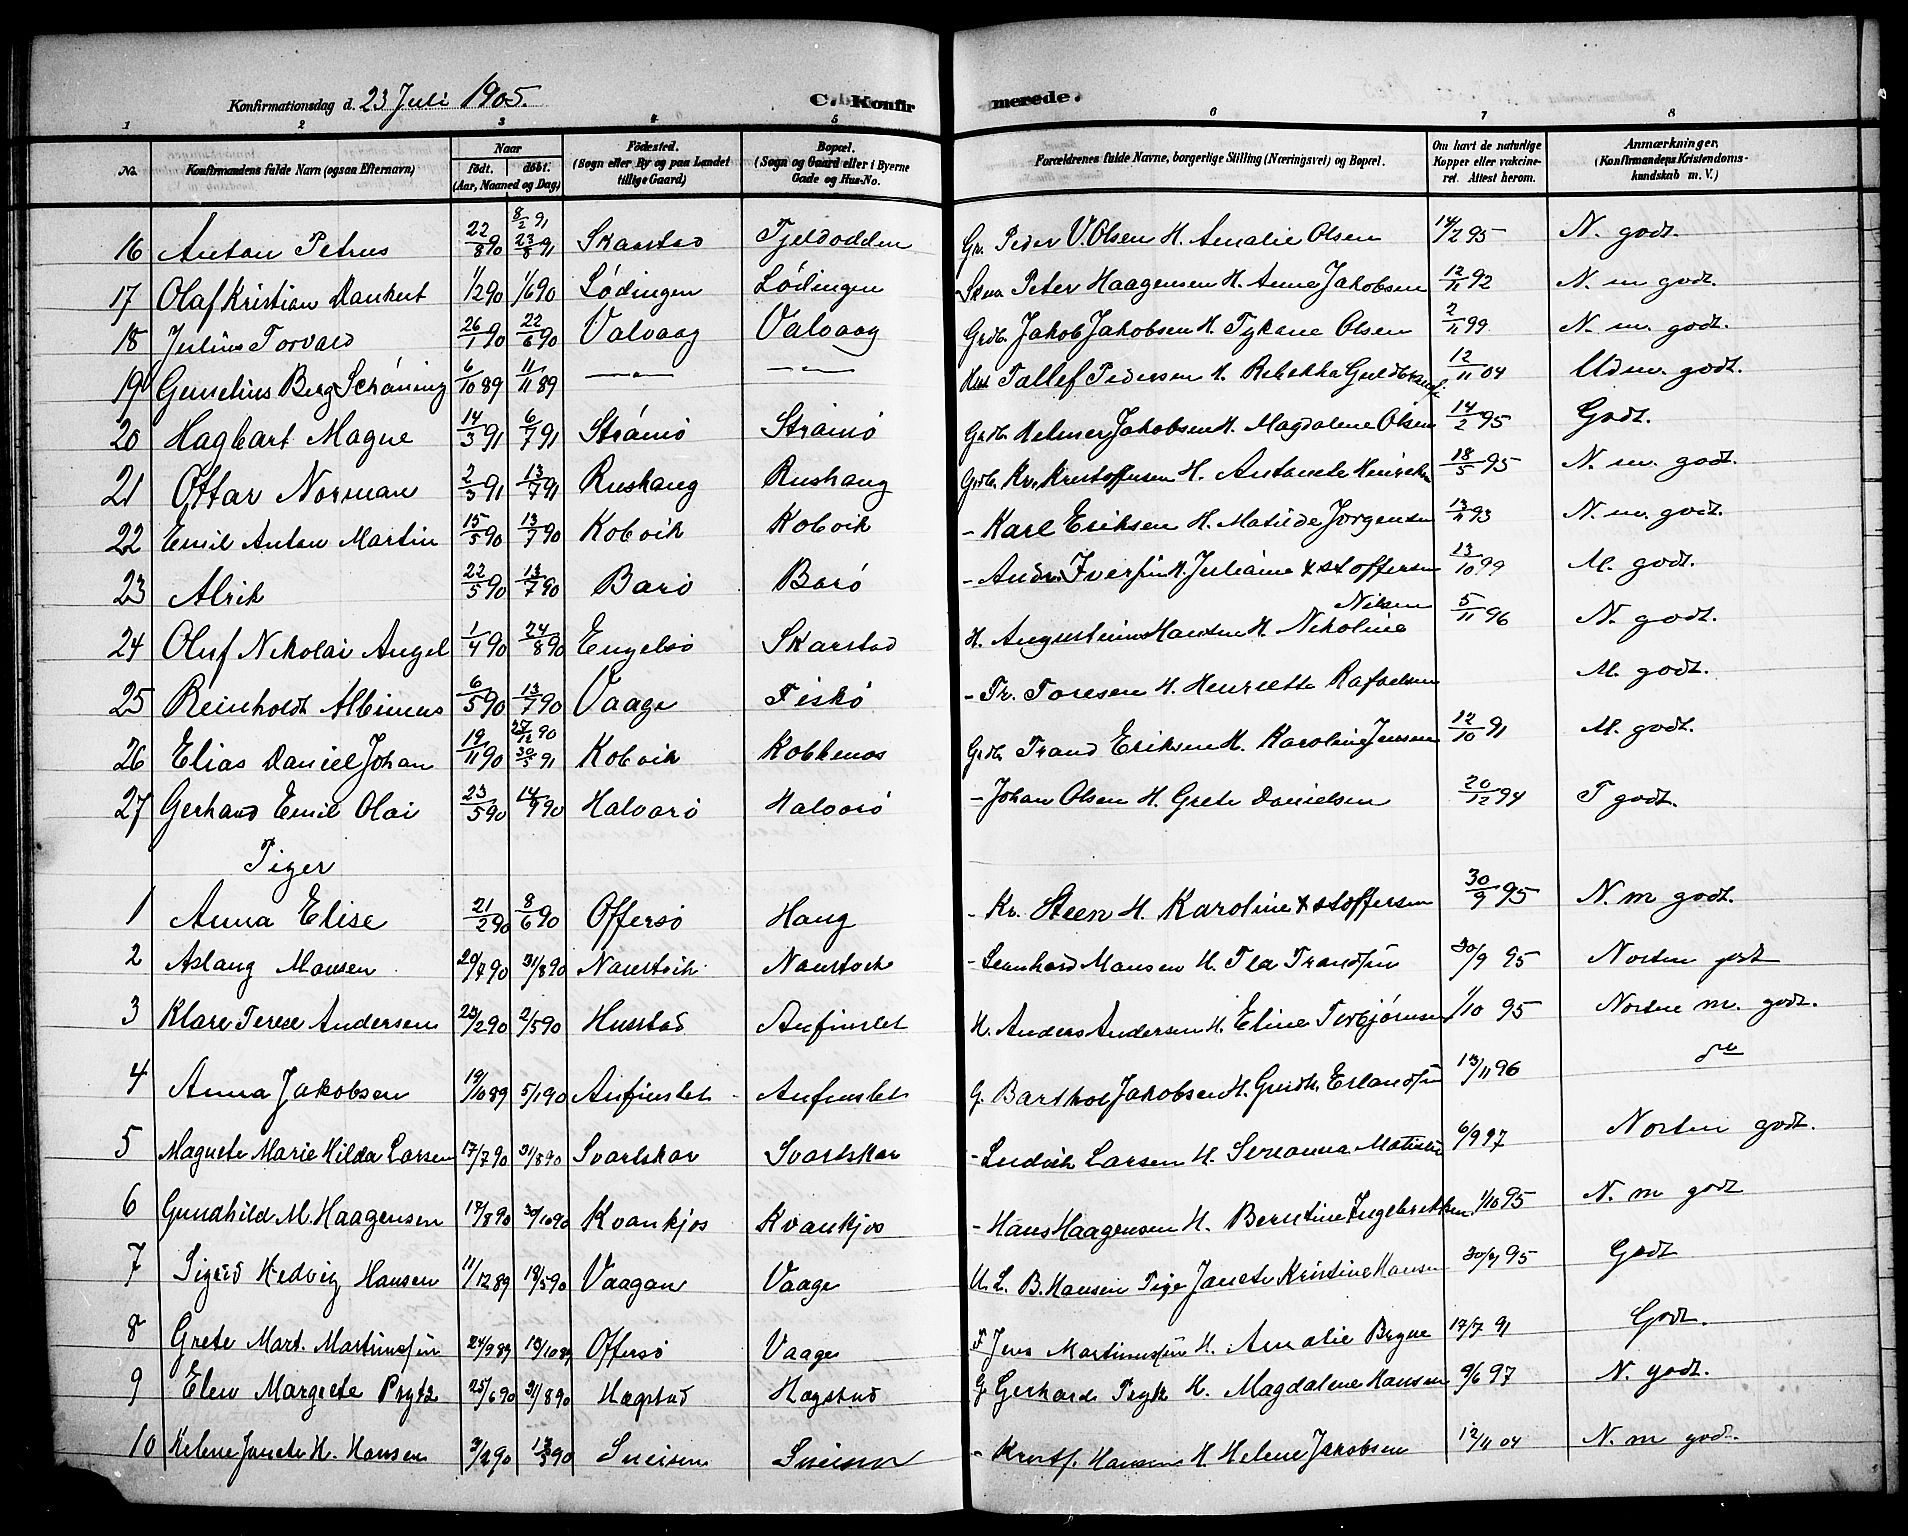 Konfirmationsdag d. 23 Juli 1905. C. Konfirmerede.
1 2 3 4 5 6 7 8
No. Konfirmandens fulde Navn (ogsaa Efternavn) Naar født. døbt. (Aar, Maaned og Dag) Fødested. (Sogn efter By og paa Landet tillige Gaard) Bopæl. (Sogn og Gaard eller i Byerne Gade og Hus-No. Forældrenes fulde Navne, borgerlige Stilling (Næringsvei) og Bopæl. Om havt de naturlige Kopper eller vakcineret. Attest herom. Anmærkninger, (Konfirmandens Kristendomskundskab m. V.)
16 Anton Petrus 22/8 90 8/2 91 23/8 91 Skarstad Tjeldodden Gr. Peder V. Olsen H. Amalie Olsen 14/2 95 N. godt.
17 Olaf Kristian Dankert 1/2 90 1/6 90 Lødingen Lødingen Peter Haagensen H. Anna Jakobsen 12/11 92 N. m godt.
18 Julius Torvald 26/1 90 22/6 90 Valvaag Valvaag Grdb. Jakob Jakobsen H. Olsen 2/11 99 N. m. godt.
19 Berg Schøning 6/10 89 11/11 89 —"— —"— Tallef Pedersen H. Rebekka 12/11 04 Udm. godt.
20 Hagbart Magne 14/3 91 6/7 91 Strømø Strømø Grdb. Helmer Jakobsen H. Magdalene Olsen 14/2 95 Godt.
21 Ottar Norman 2/3 91 13/7 91 Rushaug Rushaug Grdb. Kr. Kristoffersen H. Antonete 18/5 95 N. m. godt.
22 Emil Anton Martin 15/5 90 13/7 90 Kobvik Kobvik - Karl Eriksen H. Matilde Jørgensen 13/11 93 N. m. godt.
23 Alrik 22/5 90 13/7 90 Barø Barø - Iversen H. Juliane Xstoffersen 13/10 99 M. godt.
24 Oluf Nikolai Angel 1/4 90 24/8 90 Engelsø Skarstad H. Augustinus Hansen H. Nikoline Nilsen 5/11 96 N. godt.
25 Reinholdt Albinus 6/5 90 13/7 90 Vaage Fiskø - Toresen H. Henriette Rafaelsen M. godt.
26 Elias Daniel Johan 19/11 90 27/12 90 30/3 91 Kobvik Kobbenes Grdb. Trand Eriksen H. Karoline Jensen 12/10 91 M. godt.
27 Gerhard Emil Olai 23/5 90 14/9 90 Halvarø Halvarø - Johan Olsen H. Grete Danielsen 20/12 94 T godt.
Piger
1 Anna Elise 21/2 90 8/6 90 Offersø Haug - Kr. Steen H. Karoline Xstoffersen 30/9 95 N. m godt.
2 Aslaug Monsen 29/7 90 31/8 90 Naustvik Naustvik - Leonhard Monsen H. 30/9 95 Norten godt
3 Klara Terese Andersen 23/2 90 2/5 90 Husstad Anfinslet H. Anders Andersen H. Eline Torbjørnsen 1/10 95 Norten m. godt.
4 Anna Jakobsen 19/10 89 5/1 90 Anfinslet Anfinslet G. Barthol Jakobsen H. Erlandsen 13/11 96 do
5 Magnete Marie Hilda Larsen 17/7 90 31/8 90 Svartskar Svartskar - Ludvik Larsen H. 6/9 97 Norten godt.
6 Gundhild M. Haagensen 17/8 90 30/10 90 Kvankjos Kvankjos - Hans Haagensen H. Berntine Ingebriktsen 1/10 95 N. m godt
7 Sigrid Hedvig Hansen 11/12 89 18/5 90 Vaagan Vaage U. L. B. Hansen Pige Janete Kristine Hansen 30/9 95 Godt
8 Grete Mart. Martinussen 24/9 89 18/10 89 Offersø Vaage F Jens Martinussen H. Amalie 17/7 91 Godt.
9 Elen Margrete Prytz 25/6 90 31/8 90 Hagstad Hagstad G. Gerhard H. Magdalene Hansen 9/6 97 N. godt.
10 Helene Janete H. Hansen 3/2 90 13/3 90 Sneisen Sneisen - Kristf. Hansen H. Helene Jakobsen 12/11 04 N. m godt.